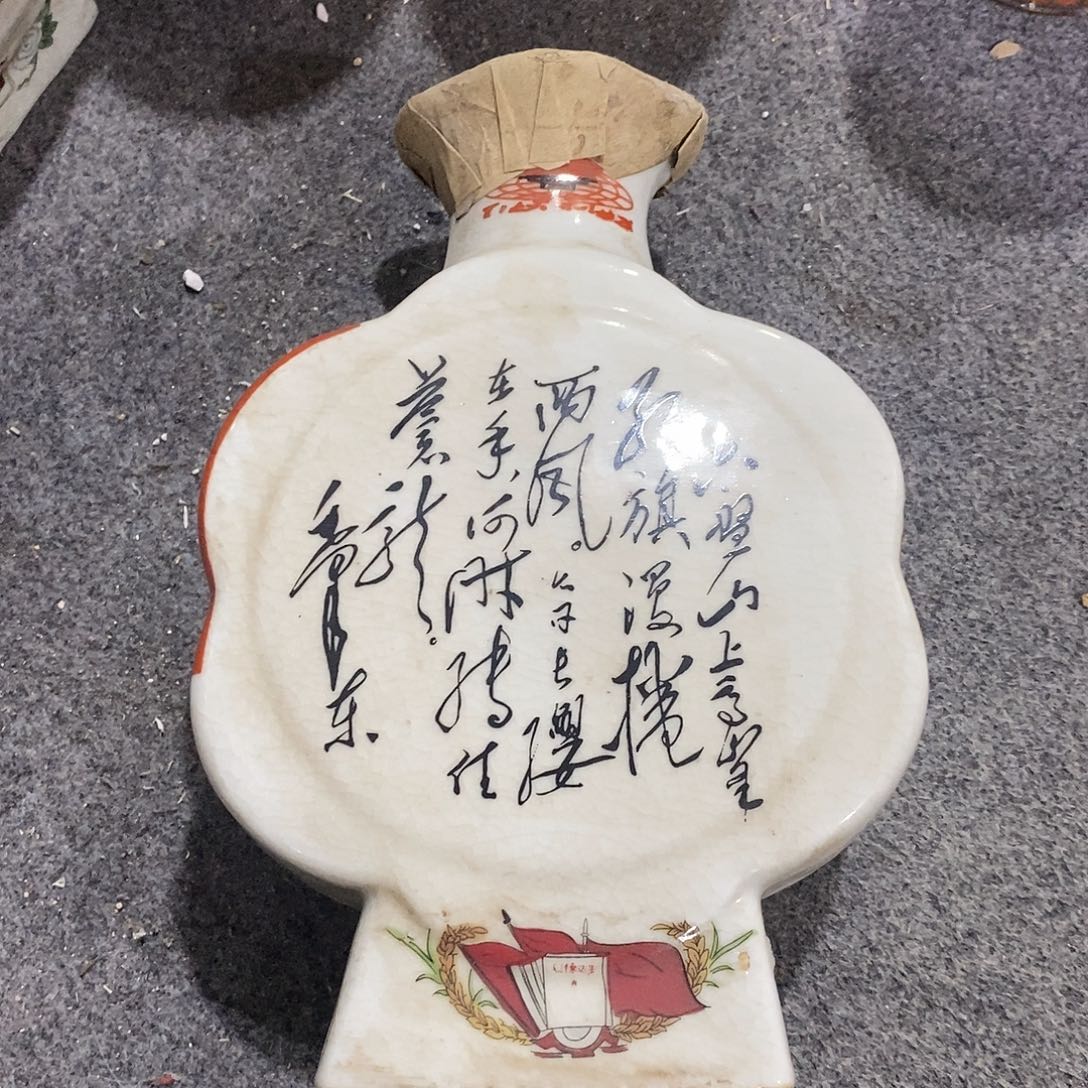 六盘山上高峯
红旗漫捲
西风。今日长缨
在手,何时缚住
蒼龙。
毛泽东